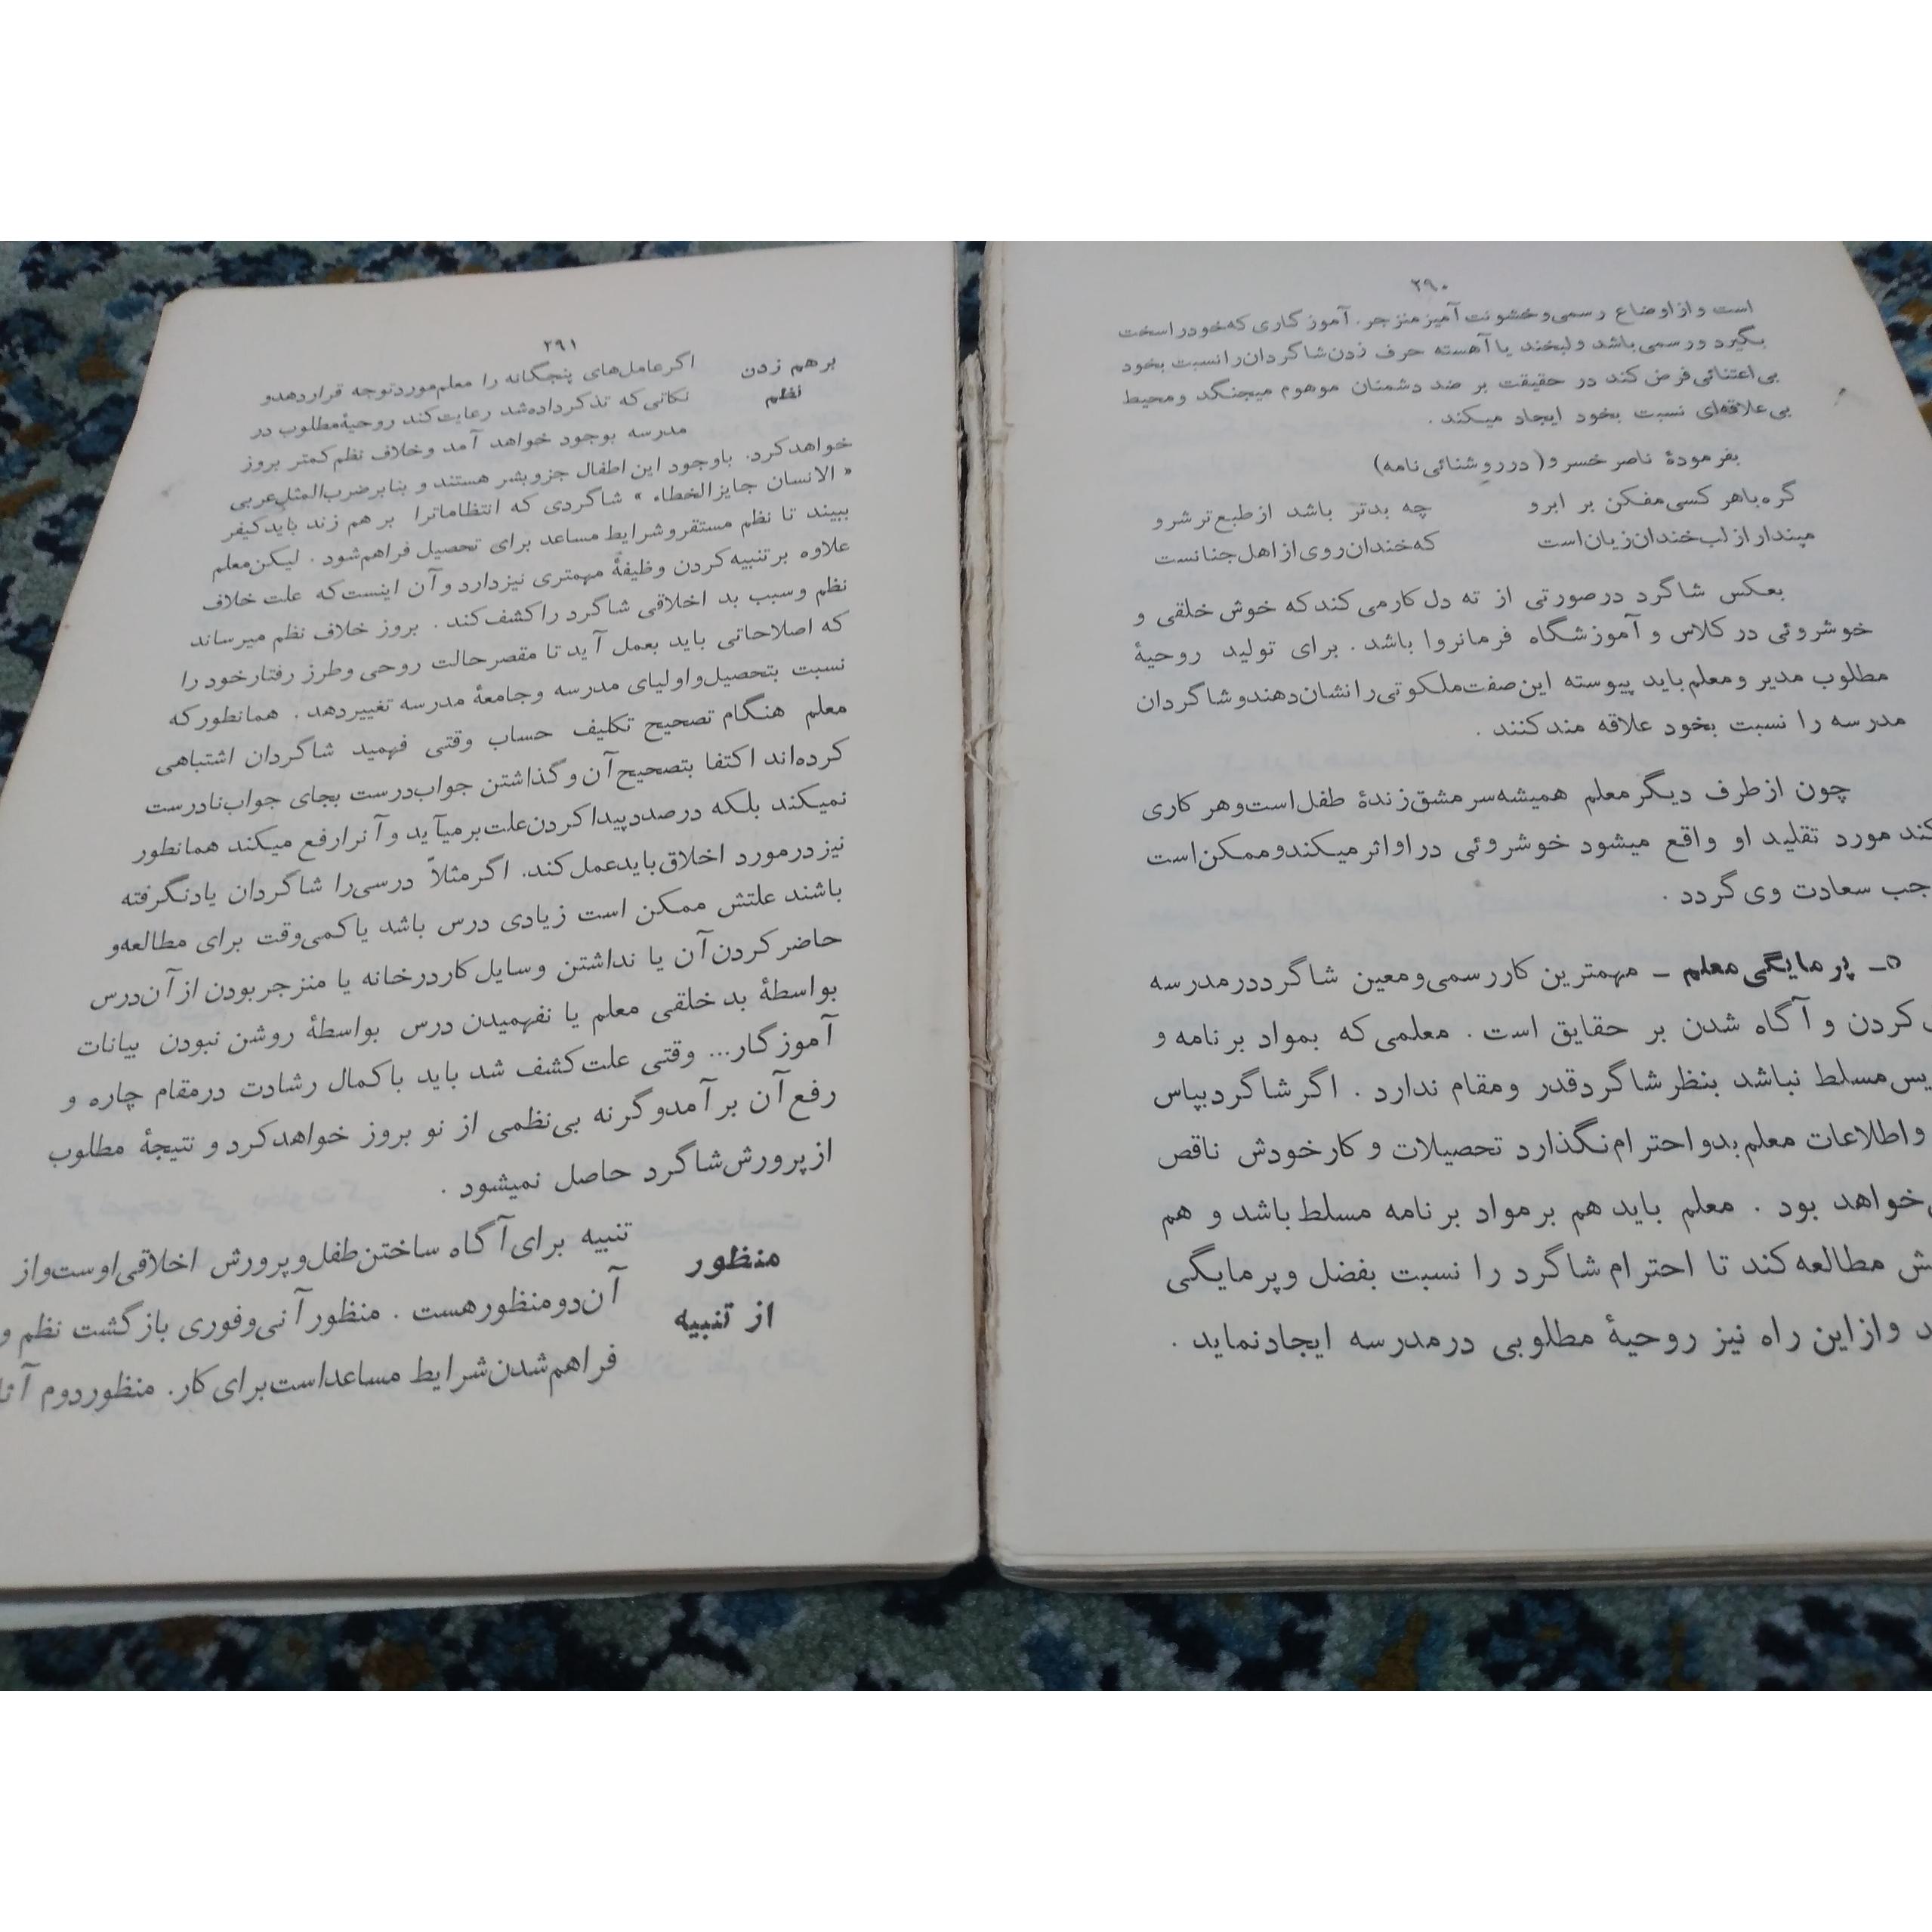 ۲۹۰
است و از اوضاع رسمی و خشونت آمیز منزجر. آموزگاری که خود را سخت
بگیرد و رسمی باشد و لبخند یا آهسته حرف زدن شاگردان را نسبت بخود
بی‌اعتنائی فرض کند در حقیقت بر ضد دشمنان موهوم میجنگد و محیط
بی‌علاقه‌ای نسبت بخود ایجاد میکند .
بفرمودهٔ ناصر خسرو (در روشنائی نامه)
گره با هر کسی مفکن بر ابرو چه بدتر باشد از طبع ترشرو
مپندار از لب خندان زیان است که خندان روی از اهل جنانست
بعکس شاگرد در صورتی از ته دل کار می کند که خوش خلقی و
خوشروئی در کلاس و آموزشگاه فرمانروا باشد . برای تولید روحیهٔ
مطلوب مدیر و معلم باید پیوسته این صفت ملکوتی را نشان دهند و شاگردان
مدرسه را نسبت بخود علاقه مند کنند .
چون از طرف دیگر معلم همیشه سرمشق زندهٔ طفل است و هر کاری
کند مورد تقلید او واقع میشود خوشروئی در او اثر میکند و ممکن است
جب سعادت وی گردد .
۵ـ پرمایگی معلم ـ مهمترین کار رسمی و معین شاگرد در مدرسه
کردن و آگاه شدن بر حقایق است . معلمی که بمواد برنامه و
یس مسلط نباشد بنظر شاگرد قدر و مقام ندارد . اگر شاگرد بپاس
و اطلاعات معلم بدو احترام نگذارد تحصیلات و کار خودش ناقص
خواهد بود . معلم باید هم بر مواد برنامه مسلط باشد و هم
ش مطالعه کند تا احترام شاگرد را نسبت بفضل و پرمایگی
د و از این راه نیز روحیهٔ مطلوبی در مدرسه ایجاد نماید .
۲۹۱
برهم زدن
نظم
اگر عامل‌های پنجگانه را معلم مورد توجه قرار دهد و
نکاتی که تذکر داده شد رعایت کند روحیهٔ مطلوب در
مدرسه بوجود خواهد آمد و خلاف نظم کمتر بروز
خواهد کرد. با وجود این اطفال جزو بشر هستند و بنابر ضرب‌المثل عربی
« الانسان جایز الخطاء » شاگردی که انتظامات را بر هم زند باید کیفر
ببیند تا نظم مستقر و شرایط مساعد برای تحصیل فراهم شود . لیکن معلم
علاوه بر تنبیه کردن وظیفهٔ مهمتری نیز دارد و آن اینست که علت خلاف
نظم و سبب بد اخلاقی شاگرد را کشف کند . بروز خلاف نظم میرساند
که اصلاحاتی باید بعمل آید تا مقصر حالت روحی و طرز رفتار خود را
نسبت بتحصیل و اولیای مدرسه و جامعهٔ مدرسه تغییر دهد . همانطور که
معلم هنگام تصحیح تکلیف حساب وقتی فهمید شاگردان اشتباهی
کرده‌اند اکتفا بتصحیح آن و گذاشتن جواب درست بجای جواب نادرست
نمیکند بلکه در صدد پیدا کردن علت بر میآید و آنرا رفع میکند همانطور
نیز در مورد اخلاق باید عمل کند. اگر مثلاً درسی را شاگردان یاد نگرفته
باشند علتش ممکن است زیادی درس باشد یا کمی وقت برای مطالعه و
حاضر کردن آن یا نداشتن وسایل کار در خانه یا منزجر بودن از آن درس
بواسطهٔ بد خلقی معلم یا نفهمیدن درس بواسطهٔ روشن نبودن بیانات
آموزگار... وقتی علت کشف شد باید با کمال رشادت در مقام چاره و
رفع آن برآمد و گرنه بی‌نظمی از نو بروز خواهد کرد و نتیجهٔ مطلوب
از پرورش شاگرد حاصل نمیشود .
منظور
از تنبیه
تنبیه برای آگاه ساختن طفل و پرورش اخلاقی اوست و از
آن دو منظور هست . منظور آنی و فوری بازگشت نظم و
فراهم شدن شرایط مساعد است برای کار. منظور دوم